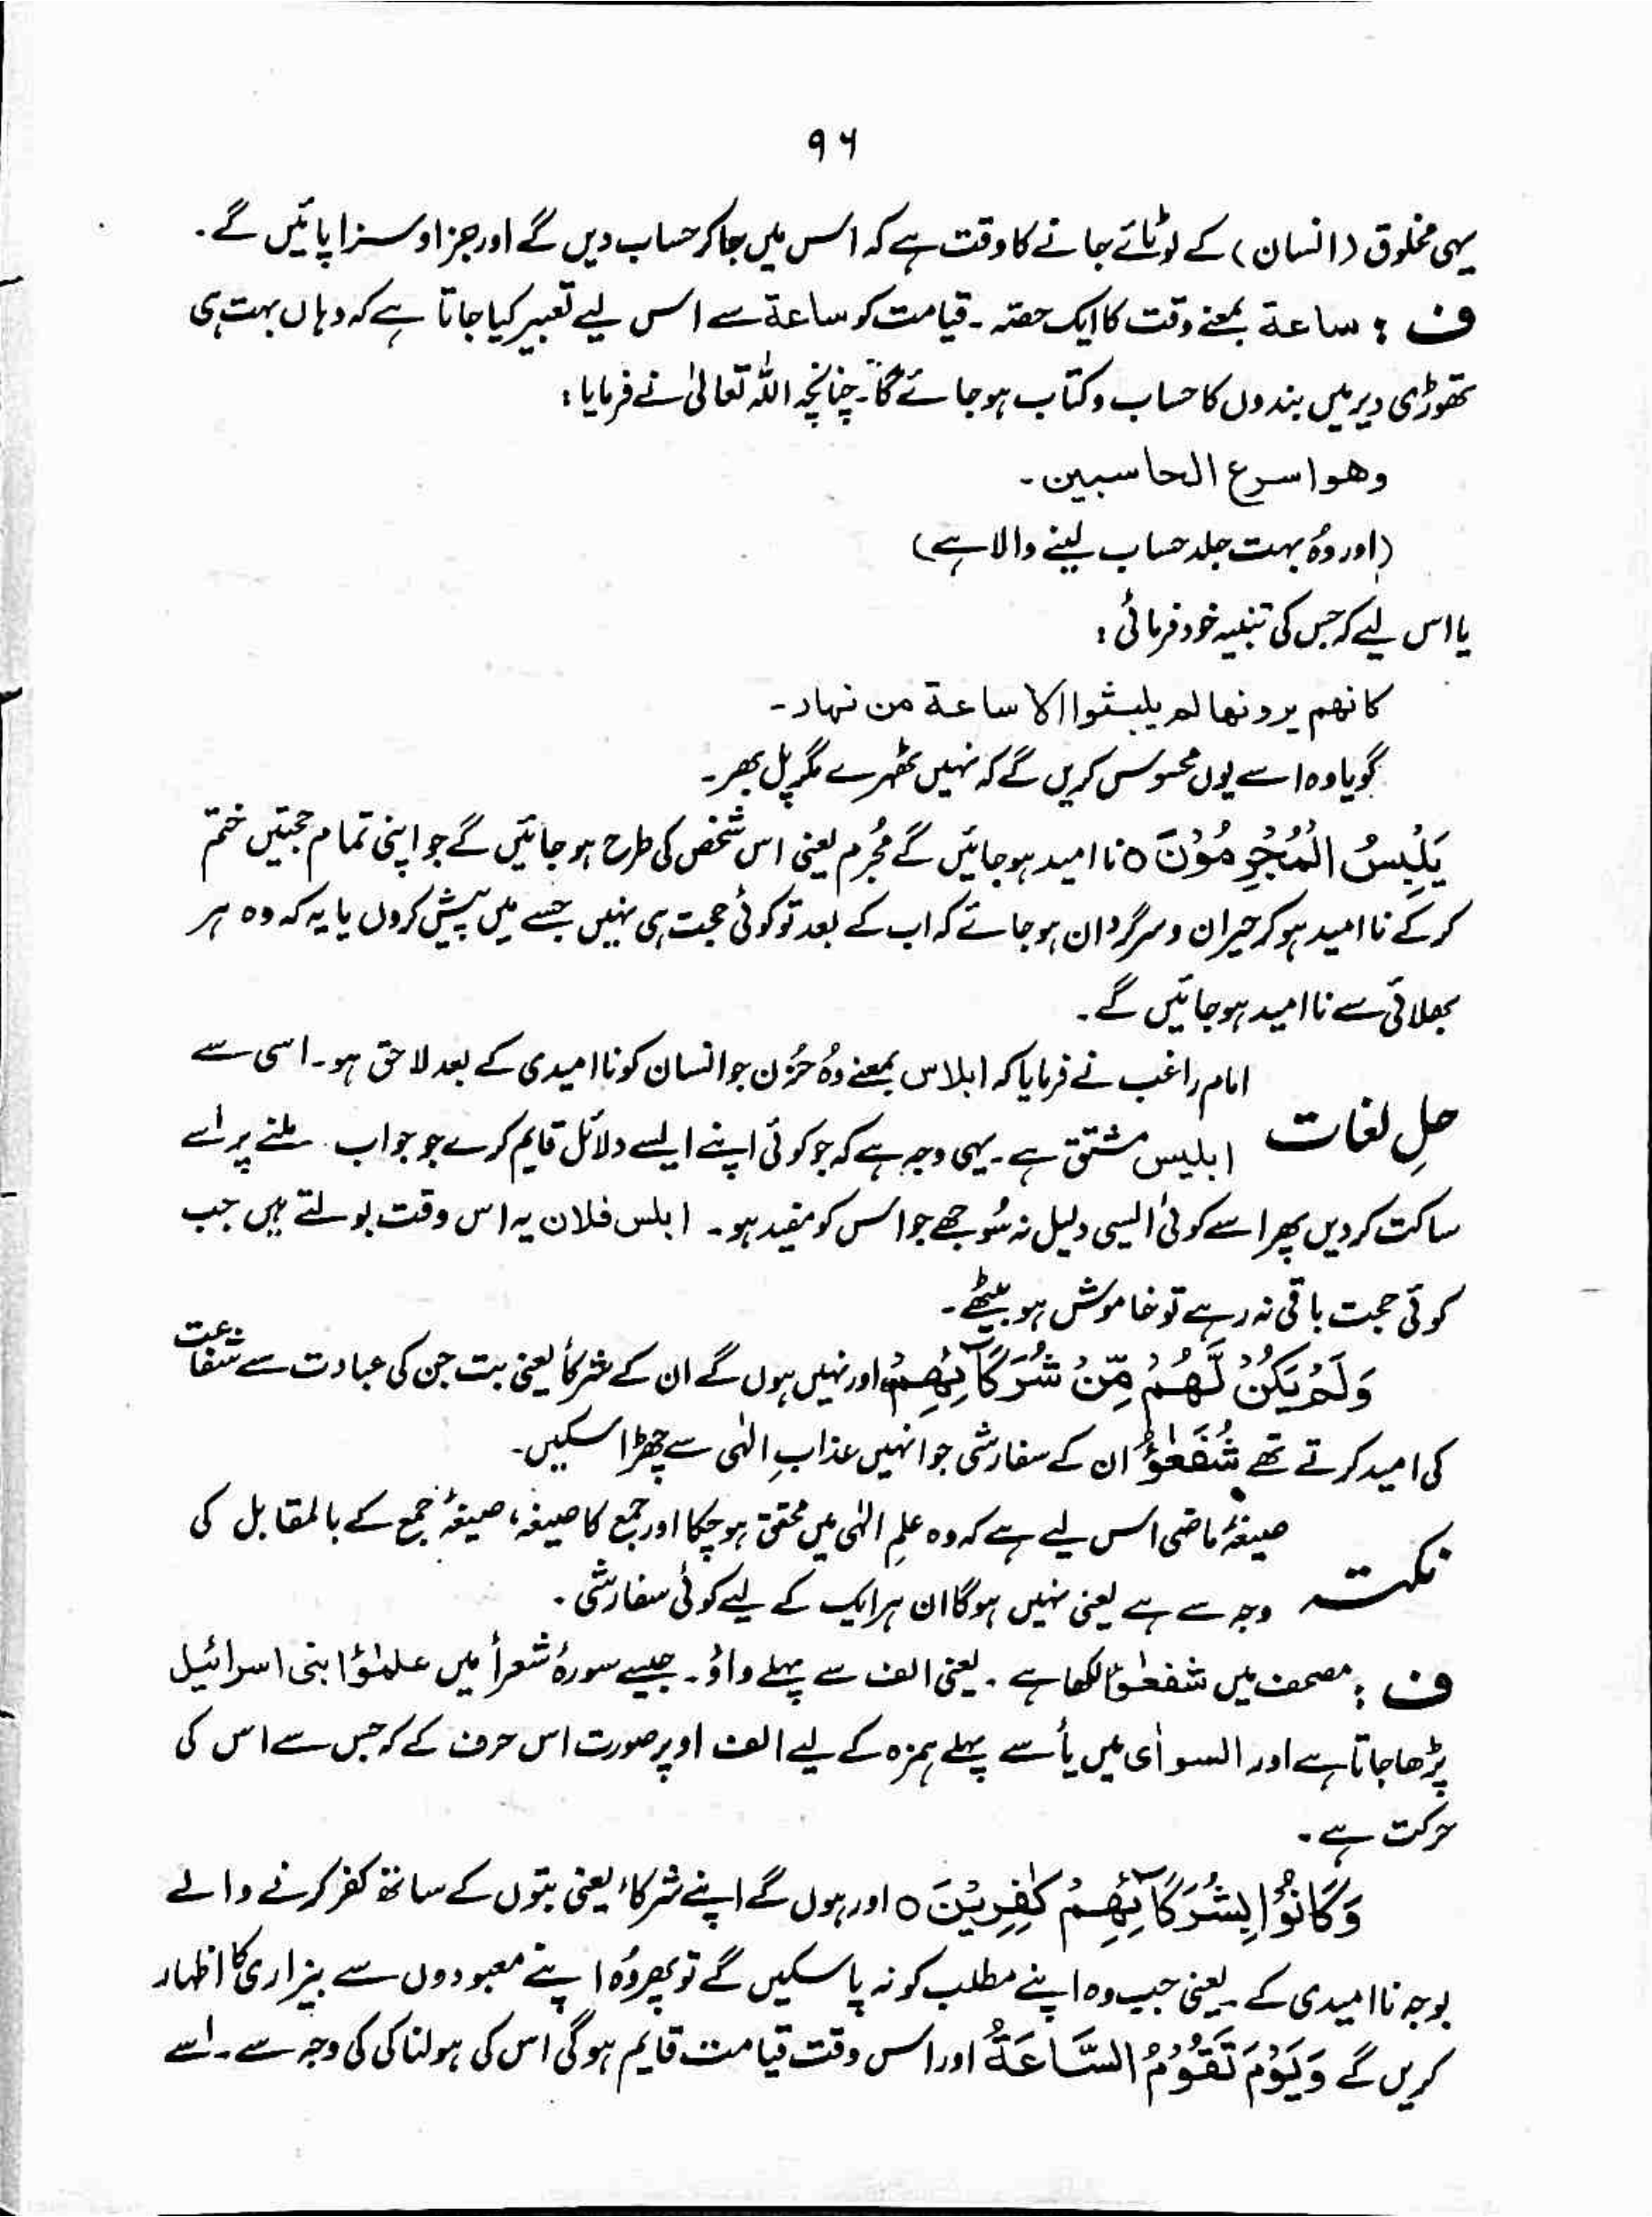 ۹۶
یہی مخلوق (انسان) کے لوٹائے جانے کا وقت ہے کہ اس میں جا کر حساب دیں گے اور جزا و سزا پائیں گے۔
ف : ساعة بمعنے وقت کا ایک حصّہ۔ قیامت کو ساعة سے اس لیے تعبیر کیا جاتا ہے کہ وہاں بہت ہی
تھوڑی دیر میں بندوں کا حساب و کتاب ہو جائے گا۔ چنانچہ اللہ تعالیٰ نے فرمایا :
وھو اسرع الحاسبین۔
(اور وُہ بہت جلد حساب لینے والا ہے)
یا اس لیے کہ جس کی تنبیہ خود فرمائی :
کانھم یرونھا لم یلبثوا الا ساعة من نہار۔
گویا وہ اسے یوں محسوس کریں گے کہ نہیں ٹھہرے مگر پل بھر۔
یُبْلِسُ الْمُجْرِمُوْنَ ٥ نا امید ہو جائیں گے مُجرم یعنی اس شخص کی طرح ہو جائیں گے جو اپنی تمام حجتیں ختم
کر کے نا امید ہو کر حیران و سرگردان ہو جائے کہ اب کے بعد تو کوئی حجت ہی نہیں جسے میں پیش کروں یا یہ کہ وہ ہر
بھلائی سے نا امید ہو جائیں گے۔
امام راغب نے فرمایا کہ ابلاس بمعنے وُہ حُزن جو انسان کو نا امیدی کے بعد لاحق ہو۔ اسی سے
حلِ لغات ابلیس مشتق ہے۔ یہی وجہ ہے کہ جو کوئی اپنے ایسے دلائل قایم کرے جو جواب ملنے پر اسے
ساکت کر دیں پھر اسے کوئی ایسی دلیل نہ سُوجھے جو اس کو مفید ہو۔ ابلس فلان یہ اس وقت بولتے ہیں جب
کوئی حجت باقی نہ رہے تو خاموش ہو بیٹھے۔
وَلَمْ یَکُنْ لَّھُمْ مِّنْ شُرَکَآئِھِمْ اور نہیں ہوں گے ان کے شرکأ یعنی بت جن کی عبادت سے شفاعت
کی امید کرتے تھے شُفَعٰٓؤُا ان کے سفارشی جو انہیں عذابِ الٰہی سے چھڑا سکیں۔
صیغۂ ماضی اس لیے ہے کہ وہ علمِ الٰہی میں محقق ہو چکا اور جمع کا صیغہ، صیغۂ جمع کے بالمقابل کی
نکتہ وجہ سے ہے یعنی نہیں ہوگا ان ہر ایک کے لیے کوئی سفارشی۔
ف : مصحف میں شفعٰؤا لکھا ہے۔ یعنی الف سے پہلے واؤ۔ جیسے سورۂ شعرأ میں علمٰؤا بنی اسرائیل
پڑھا جاتا ہے اور السواٰی میں یأ سے پہلے ہمزہ کے لیے الف اوپر صورت اس حرف کے کہ جس سے اس کی
حرکت ہے۔
وَکَانُوْا بِشُرَکَآئِھِمْ کٰفِرِیْنَ ٥ اور ہوں گے اپنے شرکاء یعنی بتوں کے ساتھ کفر کرنے والے
بوجہ نا امیدی کے یعنی جب وہ اپنے مطلب کو نہ پا سکیں گے تو پھر وُہ اپنے معبودوں سے بیزاری کا اظہار
کریں گے وَیَوْمَ تَقُوْمُ السَّاعَةُ اور اس وقت قیامت قایم ہوگی اس کی ہولناکی کی وجہ سے۔ اسے